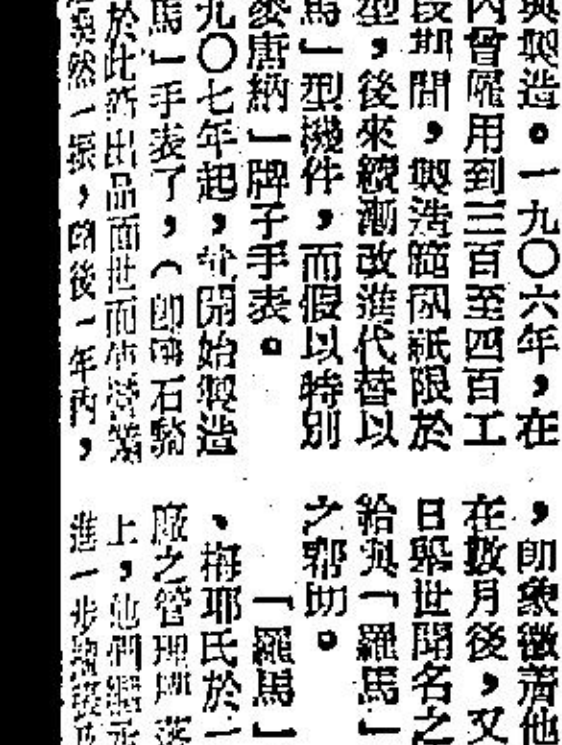 與製造。一九〇六年，在
內曾僱用到三百至四百工
段期間，製造範圍祇限於
型，後來續漸改進代替以
馬」型機件，而假以特別
麥唐納」牌子手表。
九〇七年起，開始製造
馬」手表了，（即
於此新出品面世而使營業
煥然一振，的後一年內，
，即象徵着他
在數月後，又
日舉世聞名之
給與「羅馬」
之幫助。
「羅馬」
、梅耶氏於一
廠之管理
上，他們
進一步